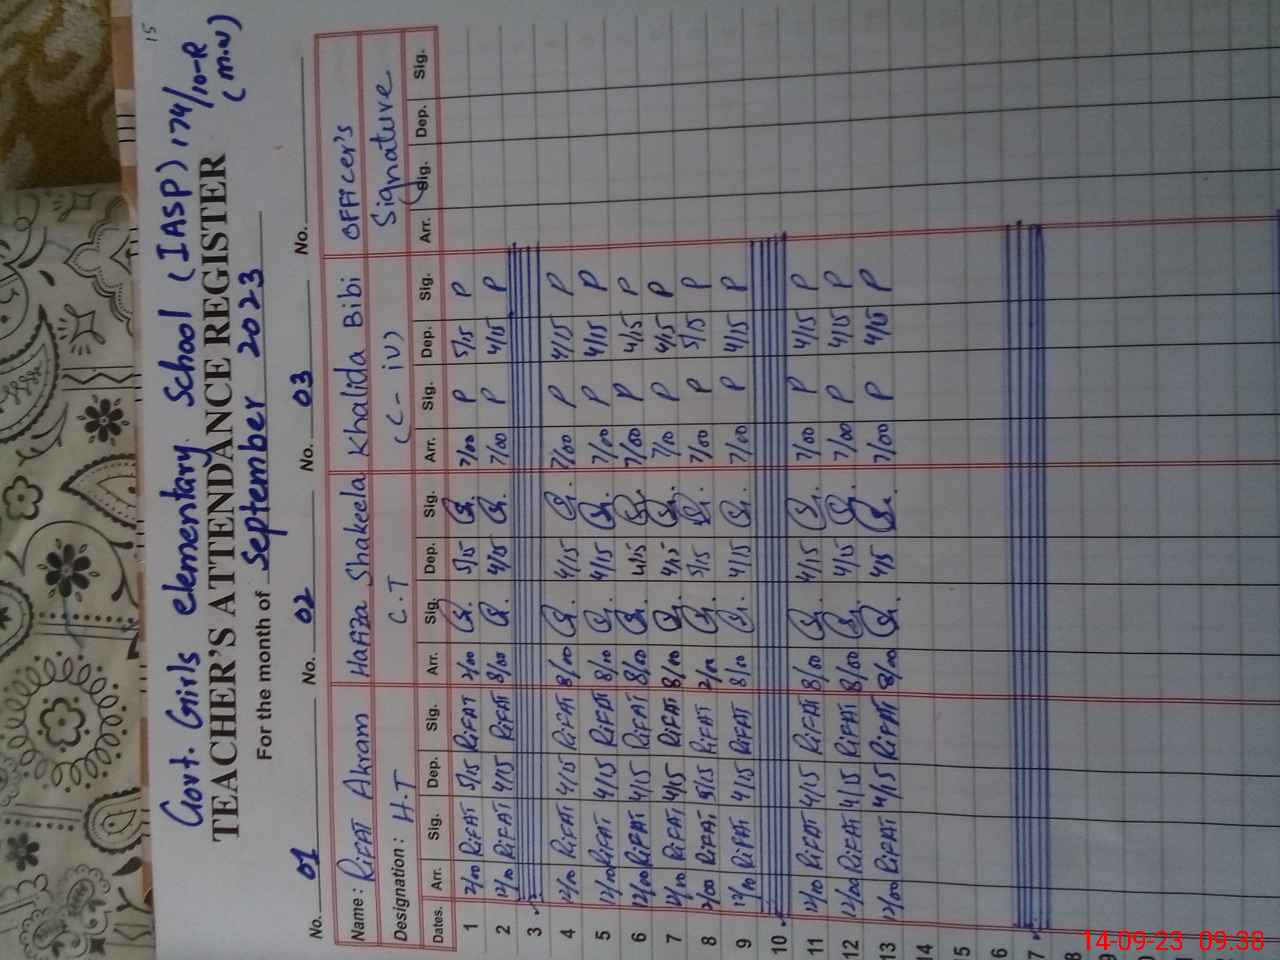 15
Govt. Girls elementary School (IASP) 174/10-R
(M.W)
TEACHER'S ATTENDANCE REGISTER
For the month of September 2023
No. 01 No. 02 No. 03 No.
Name: RIFAT Akram Hafiza Shakeela Khalida Bibi OFFicer's
Designation: H.T C.T (C-iv) Signature
Dates. Arr. Sig. Dep. Sig. Arr. Sig. Dep. Sig. Arr. Sig. Dep. Sig. Arr. Sig. Dep. Sig.
1 RiFAT 5/15 RiFAT 5/15 7/00 P 5/15 P
2 RiFAT 4/15 RiFAT 8/00 4/15 7/00 P 4/15 P
3
4 RiFAT 4/15 RiFAT 8/00 4/15 7/00 P 4/15 P
5 RiFAT 4/15 RiFAT 8/00 4/15 7/00 P 4/15 P
6 12/00 RiFAT 4/15 RiFAT 8/00 4/15 7/00 P 4/15 P
7 RiFAT 4/15 RiFAT 8/00 4/15 7/10 P 4/15 P
8 RiFAT 5/15 RiFAT 5/15 7/00 P 5/15 P
9 RiFAT 4/15 RiFAT 8/10 4/15 7/00 P 4/15 P
10
11 RiFAT 4/15 RiFAT 8/00 4/15 7/00 P 4/15 P
12 12/00 RiFAT 4/15 RiFAT 8/00 4/15 7/00 P 4/15 P
13 12/00 RiFAT 4/15 RiFAT 8/00 4/15 7/00 P 4/15 P
14
15
6
7
8
9
14-09-23 09.38